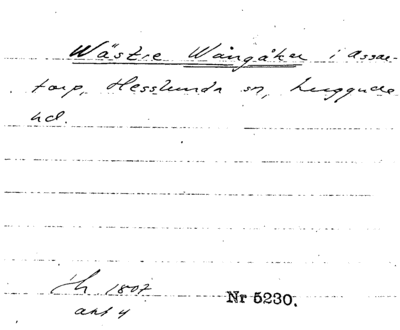 Wästre Wångåker i Assar-
torp, Hesslunda sn, Luggude
hd.
Lh 1807
akt 4
Nr 5230.